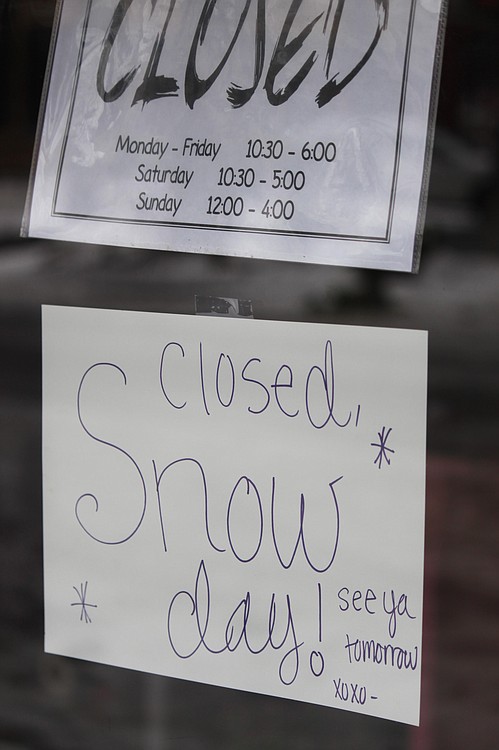 CLOSED
Monday - Friday 10:30 - 6:00
Saturday 10:30 - 5:00
Sunday 12:00 - 4:00
closed,
Snow
day!
see ya
tomorrow
xoxo-